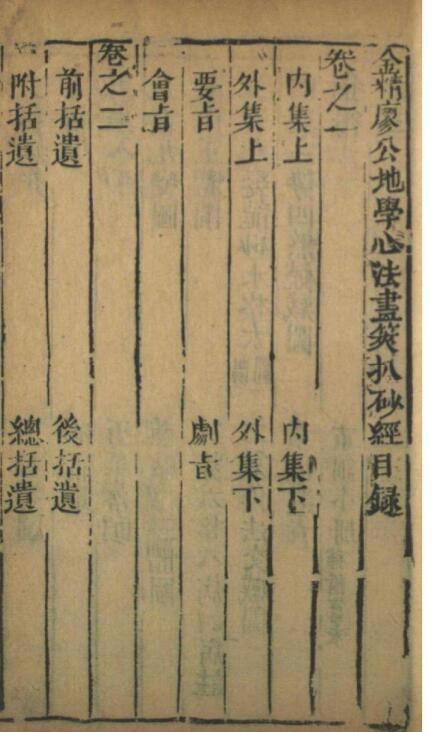 金精廖公地學心法畫筴扒砂經目録
卷之一
內集上　內集下
外集上　外集下
要旨　劇旨
會旨
卷之二
前括遺　後括遺
附括遺　總括遺